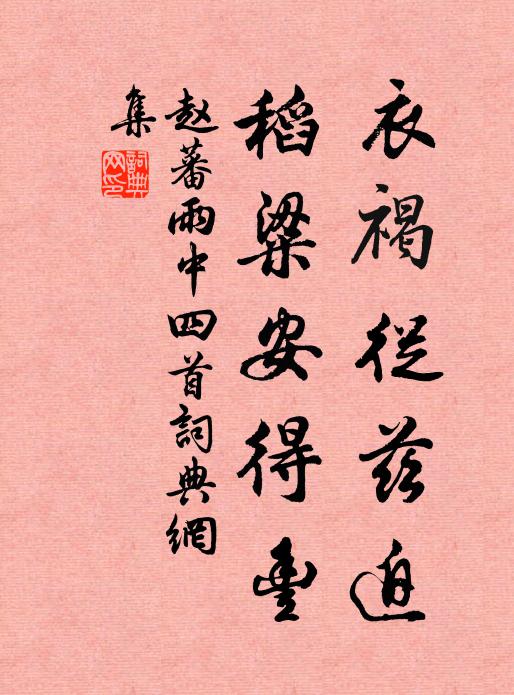 衣褐從茲迫
稻粱安得豐
赵蕃雨中四首詞典網
集
詞典網印